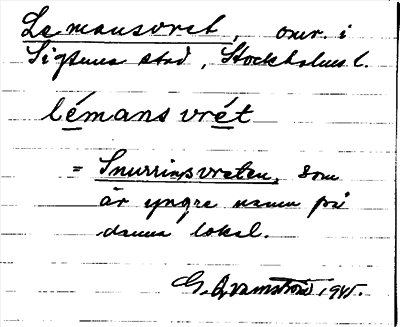 Lemansvret, omr. i
Sigtuna stad, Stockholms l.
lémans vrét
= Snurrinsvreten, som
är yngre namn på
denna lokal.
G. Qvarnström 1945.